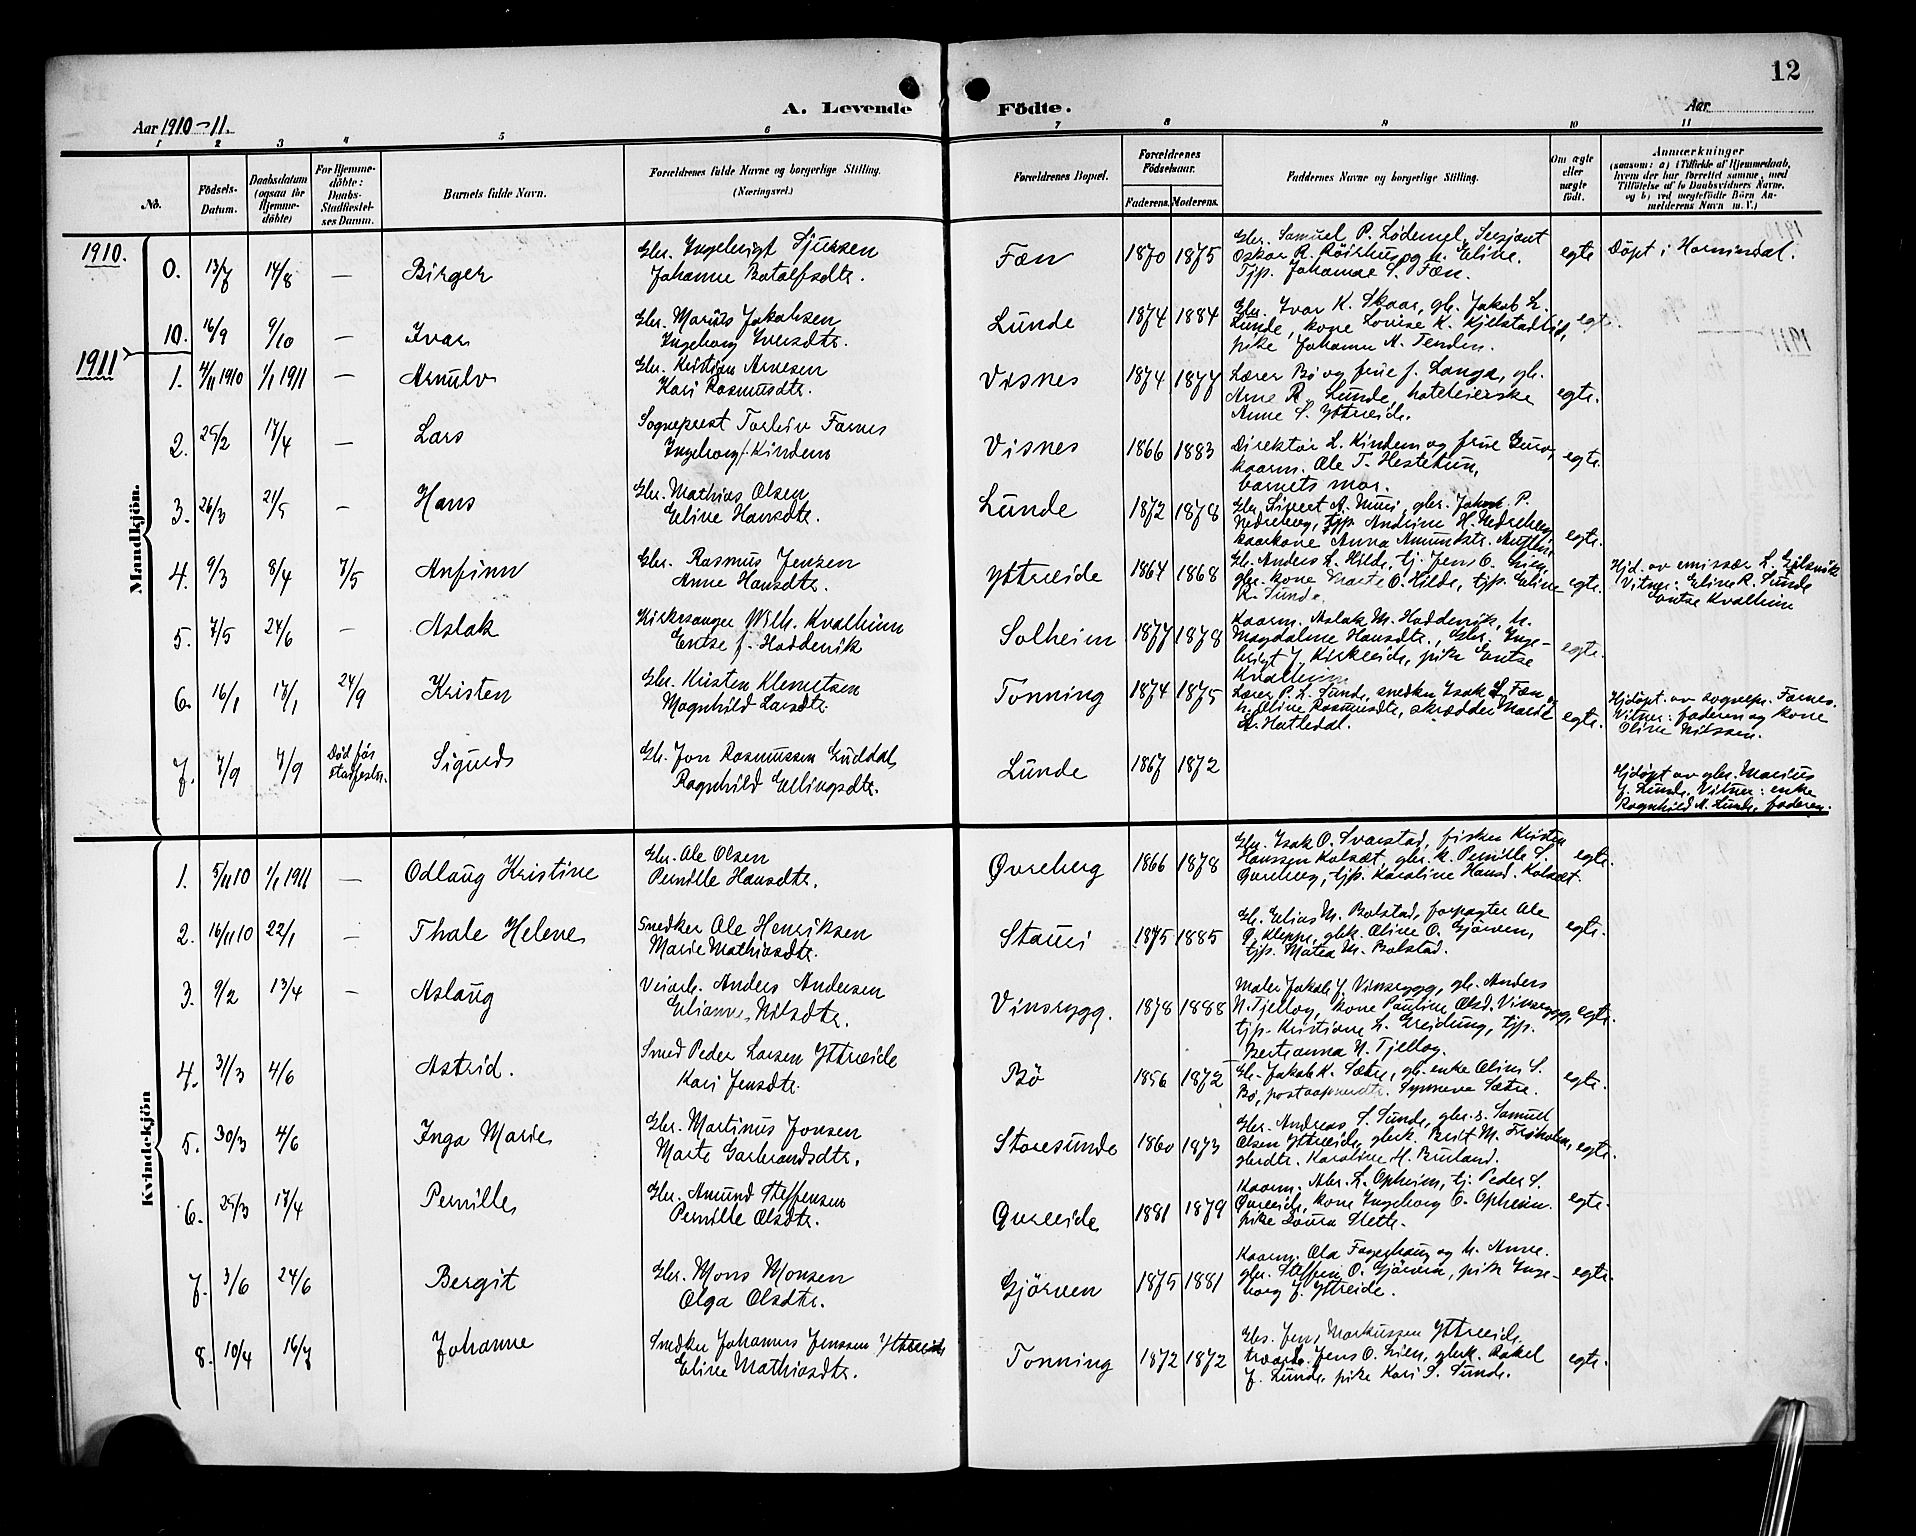 12
A. Levende Födte.
Aar 1910-11.
Aar
1 2 3 4 5 6 7 8 9 10 11
No.
Födsels-Datum.
Daabsdatum (ogsaa for Hjemme-döbte)
For Hjemme-döbte: Daabs-Stadfæstel-ses Datum.
Barnets fulde Navn.
Forældrenes fulde Navne og borgerlige Stilling. (Næringsvei.)
Forældrenes Bopæl.
Forældrenes Födselsaar.
Faderens. Moderens.
Faddernes Navne og borgerlige Stilling.
Om ægte eller uægte födt.
Anmærkninger
(saasom: a) i Tilfælde af Hjemmedaab, hvem der har forrettet samme, med Tilföielse af to Daabsvidners Navne, og b) ved uægtefödte Börn An-melderens Navn m. V.)
1910.
Mandkjön.
0. 13/7 14/8 — Birger
Gbr. Ingebrigt Sjursen
Johanne Botolfsdtr.
Fæn 1870 1875
Gbr. Samuel P. Lødemel, Sersjant
Oskar R. Røirhus og h. Eline.
Tjp. Johanne S. Fæn.
egte Døpt i Hornindal.
10. 16/9 9/10 — Ivar
Gbr. Marius Jakobsen
Ingeborg Iversdtr.
Lunde 1874 1884
Gbr. Ivar K. Skaar, gb. Jakob L.
Lunde, kone Lovise K. Kjelstadli,
pike Johanne A. Tenden.
egt.
1911
1. 4/11 1910 1/1 1911 — Arnulv
Gbr. Kristian Arnesen
Kari Rasmusdtr.
Visnes 1874 1877
Lærer Bø og frue f. Langø, gb.
Arne R. Lunde, hoteleierske
Anne S. Yttreide.
egte.
2. 25/2 17/4 — Lars
Sogneprest Torleiv Farnes
Ingeborg f. Kindem
Visnes 1866 1883
Direktør L. Kindem og frue Guro,
kaarm. Ole T. Hestetun,
barnets mor.
egte.
3. 26/3 21/5 — Hans
Gbr. Mathias Olsen
Eline Hansdtr.
Lunde 1872 1878
Gbr. Sivert A. Muri, gbr. Jakob P.
Nedreberg, tjp. Andrine H. Nedreberg
kaarkone Anna Amundstr.
egte.
4. 9/3 8/4 7/5 Anfinn
Gbr. Rasmus Jensen
Anne Hansdtr.
Yttreeide 1864 1868
Gb. Anders L. Hilde, tj. Jens O. Lien,
gbr. kone Marte O. Hilde, tjp. Eline
R. Sunde.
egte.
Hjd. av emissær L. Gjelsvik
Vitner: Eline R. Sunde
Entse Kvalheim
5. 7/5 24/6 — Aslak
Kirkesanger Wilh. Kvalheim
Entse f. Haddevik
Solheim 1877 1878
Kaarm. Aslak M. Haddevik, h.
Magdaline Hansdtr., Gbr. Inge-
brigt J. Kirkeeide, pike Entse
Kvalheim
egte.
6. 16/1 17/1 24/9 Kristen
Gbr. Kristen Klemetsen
Magnhild Larsdtr.
Tonning 1874 1875
Lærer P. L. Sunde, snedker Isak L. Fæn og
h. Oline Rasmusdtr, skrædder Marte
A. Hatledal.
egte.
Hjdøpt av sognepr. Farnes.
Vitner: faderen og kone
Oline Nilssen.
7. 7/9 7/9 Død før stadfestn. Sigurd
Gb. Jon Rasmussen Guddal
Ragnhild Ellingsdtr.
Lunde 1867 1872
Hjdøpt av gbr. Marius
J. Lunde, Vitner: enke
Ragnhild A. Lunde, faderen.
Kvindekjön
1. 5/11 10 1/1 1911 — Odlaug Kristine
Gbr. Ole Olsen
Pernille Hansdtr.
Øvreberg 1866 1878
Gbr. Isak O. Svarstad, fisker Kristen
Hanssen Kolset, gbr. k. Pernille S.
Øvreberg, tjp. Karoline Hansd. Kolset.
egte.
2. 16/11 10 22/1 — Thale Helene
Snedker Ole Henriksen
Marie Mathiasdtr.
Stauri 1875 1885
Gb. Elias M. Bolstad, forpagter Ole
O. Kleppe, gbk. Oline O. Gjørven,
tjp. Matea M. Bolstad.
egte.
3. 9/2 13/4 — Aslaug
Veiarb. Anders Andersen
Elianne Nilsdtr.
Vinsrygg. 1878 1888
Maler Jakob J. Vinsrygg, gb. Anders
N. Tjellog, kone Pauline Olsd. Vinsrygg,
tjp. Kristiane L. Greidung, tjp.
Bertianna N. Tjellog.
egte.
4. 31/3 4/6 Astrid.
Smed Peder Larsen Yttreeide
Kari Jensdtr.
Bø 1856 1872
Gb. Jakob K. Sætre, gb. enke Oline S.
Bø, postaapnerdtr. Synneve Sætre.
egte.
5. 30/3 4/6 Inga Marie
Gbr. Martinus Jonsen
Marte Garbrandsdtr.
Storesunde 1860 1873
Gbr. Andreas S. Sunde, gbr. s. Samuel
Olsen Yttreeide, gbrk. Brit M. Frøholm,
gbrdtr. Karoline H. Buland.
egte.
6. 25/3 17/4 Pernille
Gbr. Amund Steffensen
Pernille Olsdtr.
Øvreeide 1881 1879
Kaarm. Abr. L. Opheim, tj. Peder S.
Øvreeide, kone Ingeborg O. Opheim.
pike Laura Slette.
egte.
7. 3/6 24/6 Bergit
Gbr. Mons Monsen
Olga Olsdtr.
Gjørven 1875 1881
Kaarm. Ola Fagerhaug og h. Anne.
gbr. Steffen O. Gjørven, pike Inge-
borg J. Yttreide.
egte.
8. 10/4 16/7 Johanne
Snedker Johannes Jenssen Yttreeide
Eline Mathiasdtr.
Tonning 1872 1872
Gbs. Jens Markussen Yttreeide
Jens O. Lien, gbrk. Rakel
J. Lunde, pike Kari S. Sunde.
egte.